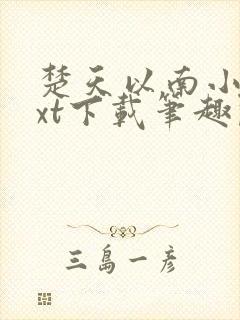 楚天以南小
xt下載筆趣
三島一彥